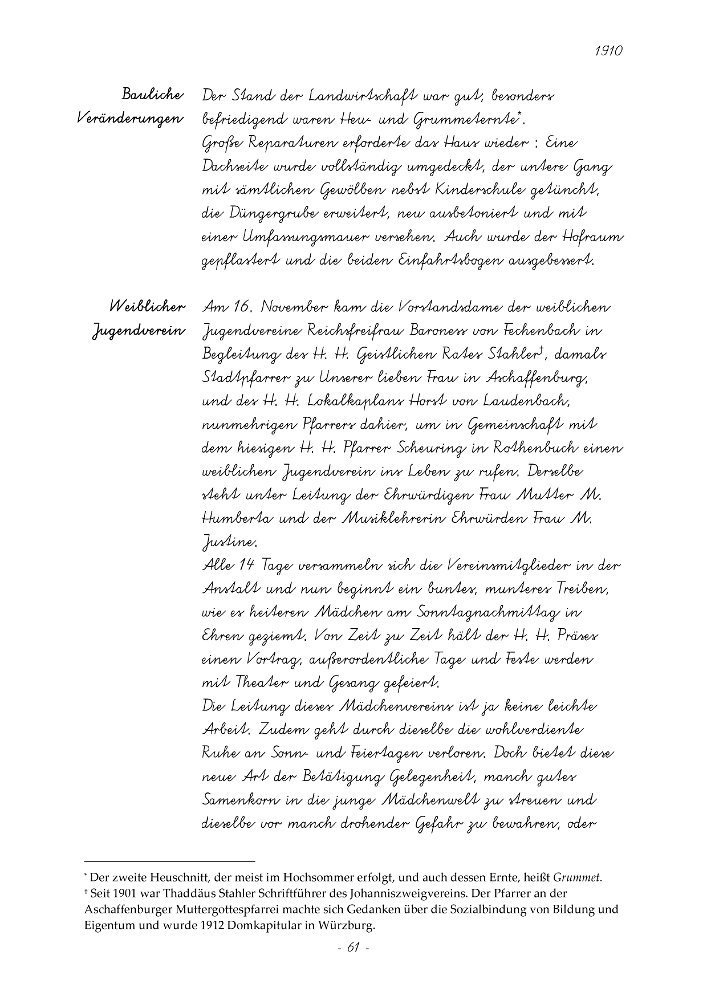 1910
Bauliche
Veränderungen
Der Stand der Landwirtschaft war gut, besonders
befriedigend waren Heu- und Grummeternte*.
Große Reparaturen erforderte das Haus wieder : Eine
Dachseite wurde vollständig umgedeckt, der untere Gang
mit sämtlichen Gewölben nebst Kinderschule getüncht,
die Düngergrube erweitert, neu ausbetoniert und mit
einer Umfassungsmauer versehen. Auch wurde der Hofraum
gepflastert und die beiden Einfahrtsbogen ausgebessert.
Weiblicher
Jugendverein
Am 16. November kam die Vorstandsdame der weiblichen
Jugendvereine Reichsfreifrau Baroness von Fechenbach in
Begleitung des H. H. Geistlichen Rates Stahler†, damals
Stadtpfarrer zu Unserer lieben Frau in Aschaffenburg,
und des H. H. Lokalkaplans Horst von Laudenbach,
nunmehrigen Pfarrers dahier, um in Gemeinschaft mit
dem hiesigen H. H. Pfarrer Scheuring in Rothenbuch einen
weiblichen Jugendverein ins Leben zu rufen. Derselbe
steht unter Leitung der Ehrwürdigen Frau Mutter M.
Humberta und der Musiklehrerin Ehrwürden Frau M.
Justine.
Alle 14 Tage versammeln sich die Vereinsmitglieder in der
Anstalt und nun beginnt ein buntes, munteres Treiben,
wie es heiteren Mädchen am Sonntagnachmittag in
Ehren geziemt. Von Zeit zu Zeit hält der H. H. Präses
einen Vortrag, außerordentliche Tage und Feste werden
mit Theater und Gesang gefeiert.
Die Leitung dieses Mädchenvereins ist ja keine leichte
Arbeit. Zudem geht durch dieselbe die wohlverdiente
Ruhe an Sonn- und Feiertagen verloren. Doch bietet diese
neue Art der Betätigung Gelegenheit, manch gutes
Samenkorn in die junge Mädchenwelt zu streuen und
dieselbe vor manch drohender Gefahr zu bewahren, oder
* Der zweite Heuschnitt, der meist im Hochsommer erfolgt, und auch dessen Ernte, heißt Grummet.
† Seit 1901 war Thaddäus Stahler Schriftführer des Johanniszweigvereins. Der Pfarrer an der
Aschaffenburger Muttergottespfarrei machte sich Gedanken über die Sozialbindung von Bildung und
Eigentum und wurde 1912 Domkapitular in Würzburg.
- 61 -